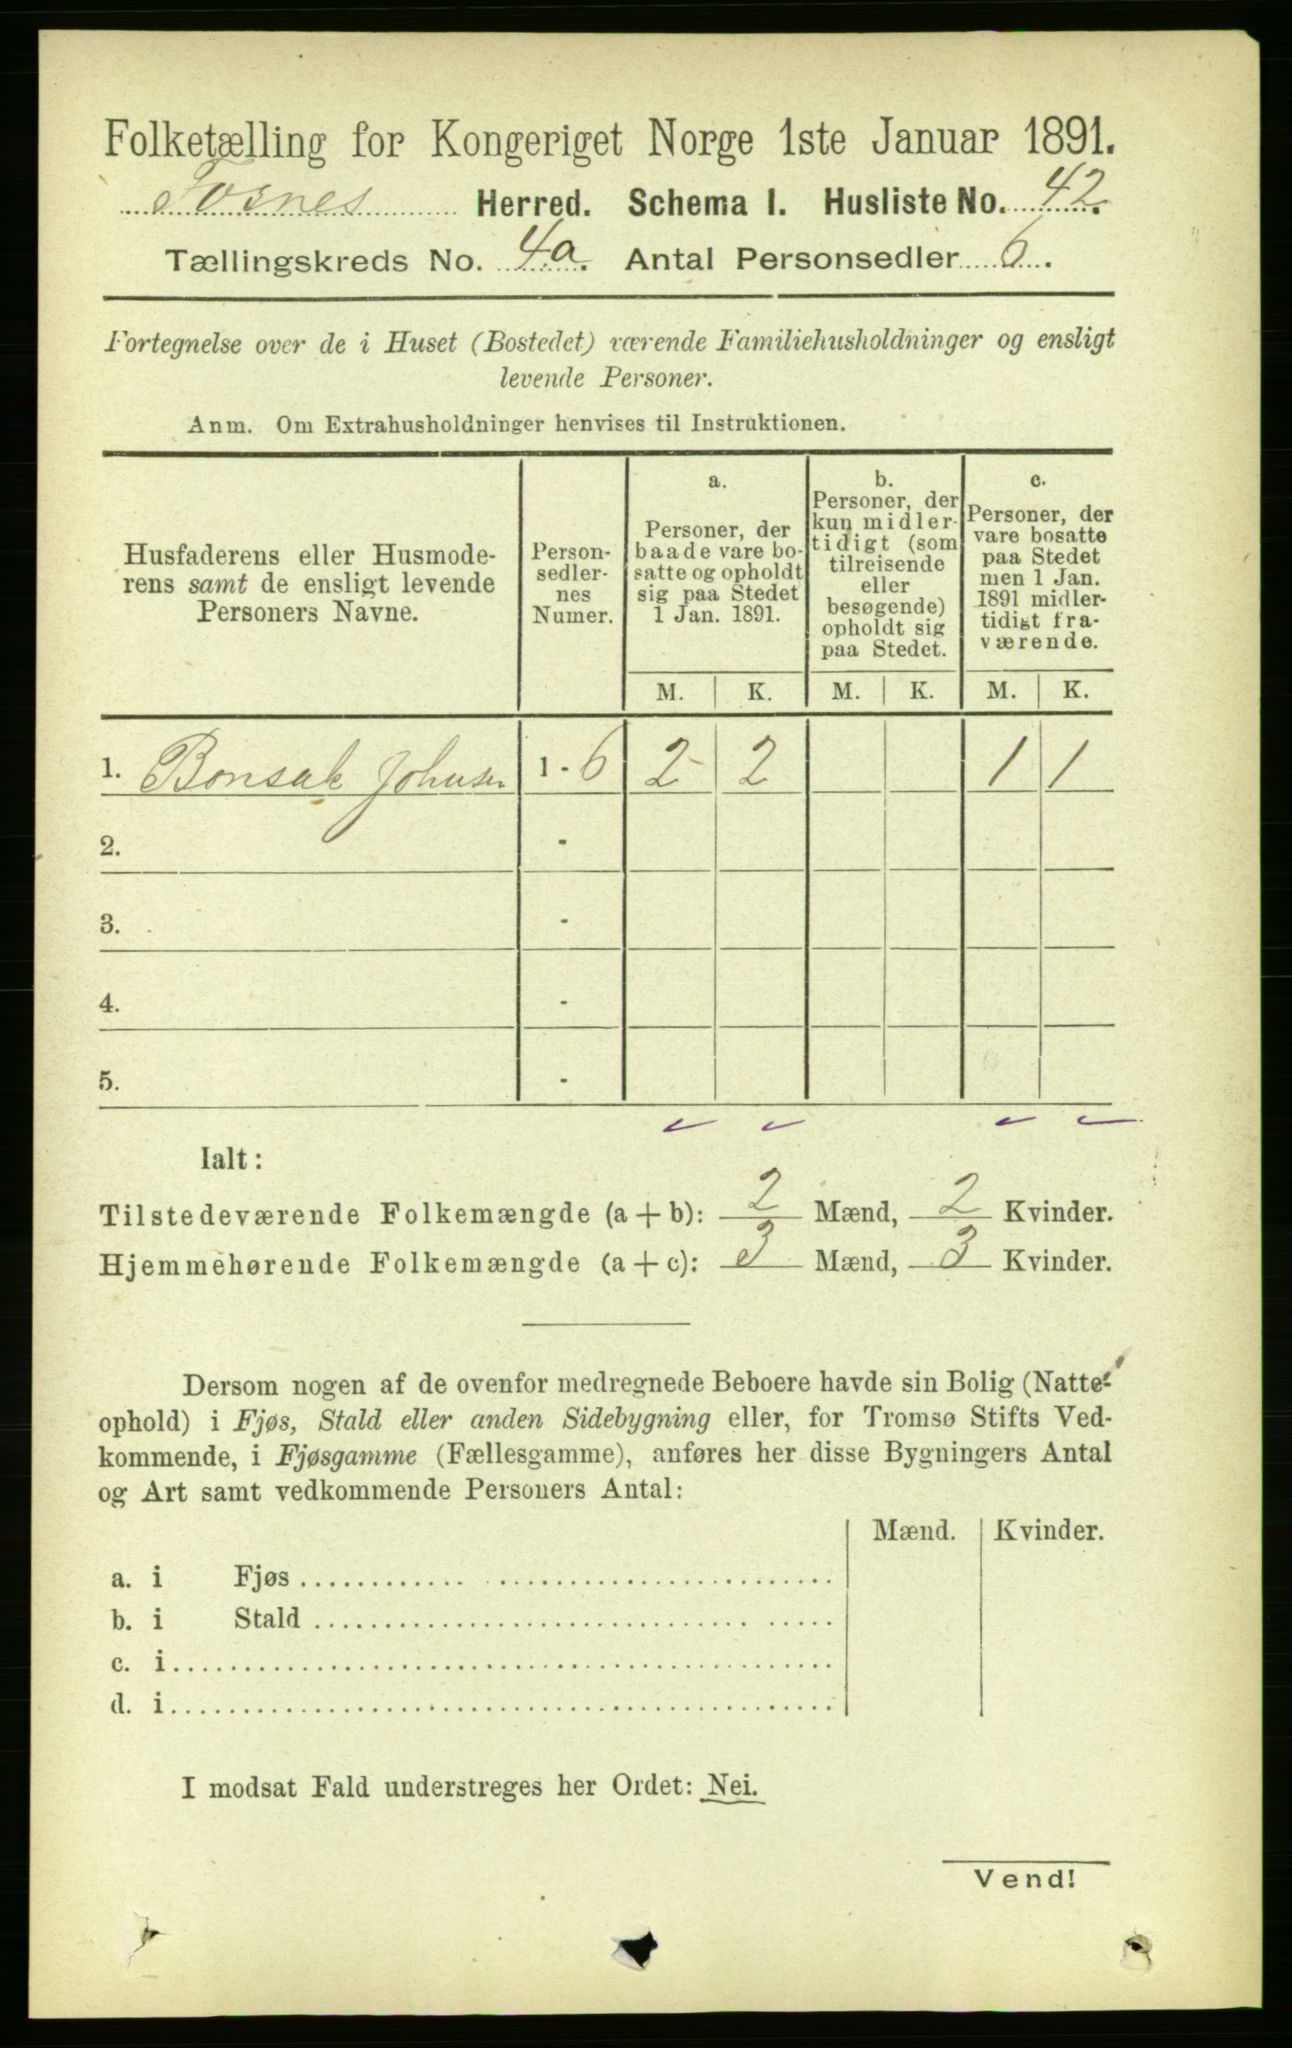 Folketælling for Kongeriget Norge 1ste Januar 1891.
Fosnes Herred. Schema I. Husliste No. 42.
Tællingskreds No. 4a. Antal Personsedler 6.
Fortegnelse over de i Huset (Bostedet) værende Familiehusholdninger og ensligt
levende Personer.
Anm. Om Extrahusholdninger henvises til Instruktionen.
Husfaderens eller Husmode-
rens samt de ensligt levende
Personers Navne.
Person-
sedler-
nes
Numer.
a.
Personer, der
baade vare bo-
satte og opholdt
sig paa Stedet
1 Jan. 1891.
b.
Personer, der
kun midler-
tidigt (som
tilreisende
eller
besøgende)
opholdt sig
paa Stedet.
c.
Personer, der
vare bosatte
paa Stedet
men 1 Jan.
1891 midler-
tidigt fra-
værende.
M. K. M. K. M. K.
1. Bonsak Johnsen 1 - 6 2 2 1 1
2. -
3. -
4. -
5. -
Ialt:
Tilstedeværende Folkemængde (a + b): 2 Mænd, 2 Kvinder.
Hjemmehørende Folkemængde (a + c): 3 Mænd, 3 Kvinder.
Dersom nogen af de ovenfor medregnede Beboere havde sin Bolig (Natte-
ophold) i Fjøs, Stald eller anden Sidebygning eller, for Tromsø Stifts Ved-
kommende, i Fjøsgamme (Fællesgamme), anføres her disse Bygningers Antal
og Art samt vedkommende Personers Antal:
Mænd. Kvinder.
a. i Fjøs
b. i Stald
c. i
d. i
I modsat Fald understreges her Ordet: Nei.
Vend!